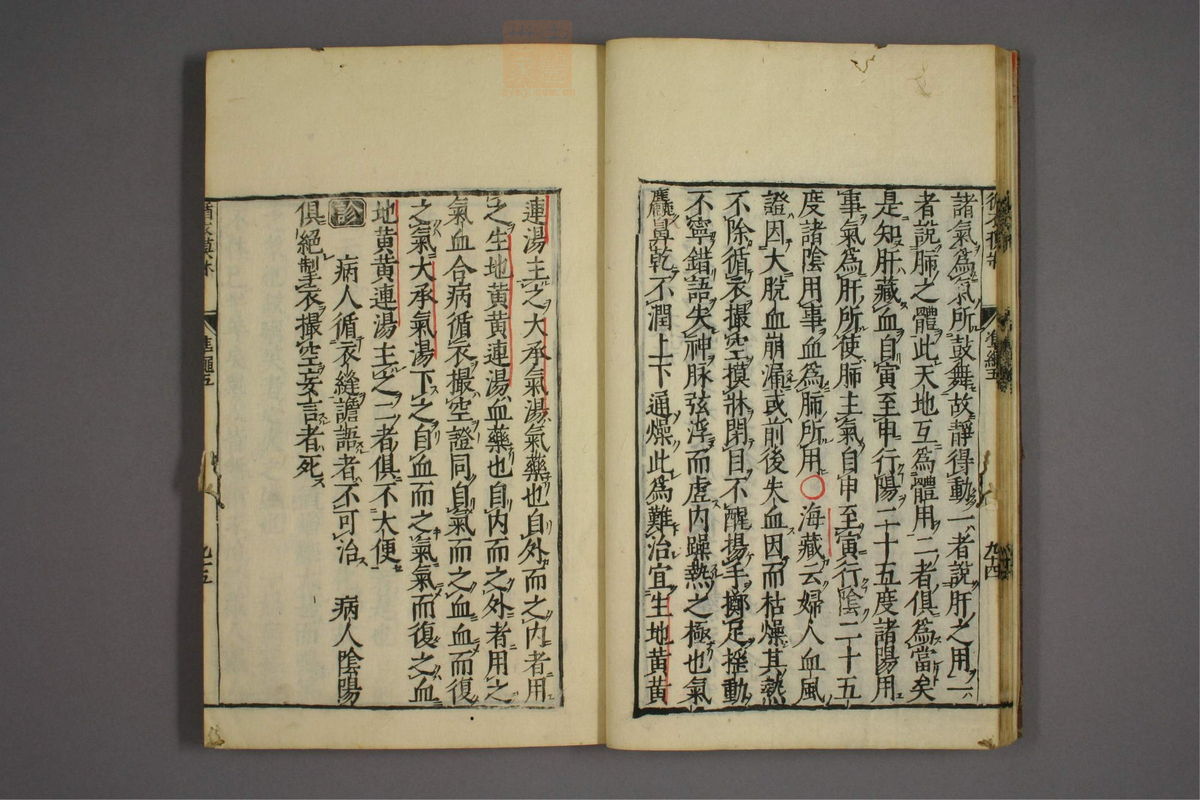 諸氣爲氣所鼓舞故靜得動一者說肝之用一
者說肺之體此天地互爲體用二者俱爲當矣
是知肝藏血自寅至申行陽二十五度諸陽用
事氣爲肝所使肺主氣自申至寅行陰二十五
度諸陰用事血爲肺所用○海藏云婦人血風
證因大脫血崩漏或前後失血因而枯燥其熱
不除循衣撮空摸牀閉目不醒揚手擲足搖動
不寧錯語失神脉弦浮而虛内躁熱之極也氣
麤鼻乾不潤上下通燥此爲難治宜生地黄黄
準繩五
九十四
連湯主之大承氣湯氣藥也自外而之内者用
之生地黄黄連湯血藥也自内而之外者用之
氣血合病循衣撮空證同自氣而之血血而復
之氣大承氣湯下之自血而之氣氣而復之血
地黄黄連湯主之二者俱不大便
診
病人循衣縫譫語者不可治 病人陰陽
俱絕掣衣撮空妄言者死
循衣摸牀
準繩五
九十五